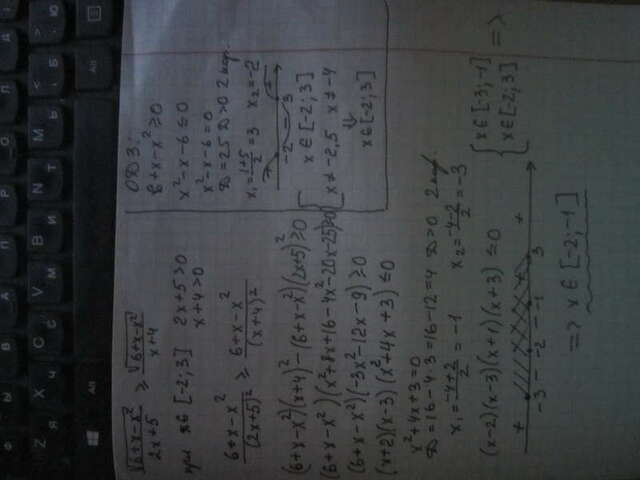 Z Я X Ч C С V М B И N Т M Ь < Б > Ю
Alt Alt
√(6+x-x²)/(2x+5) ≥ √(6+x-x²)/(x+4)
при x∈[-2;3] 2x+5>0
x+4>0
(6+x-x²)/(2x+5)² ≥ (6+x-x²)/(x+4)²
(6+x-x²)(x+4)²-(6+x-x²)(2x+5)²≥0
(6+x-x²)(x²+8x+16-4x²-20x-25)≥0
(6+x-x²)(-3x²-12x-9)≥0
(x+2)(x-3)(x²+4x+3)≤0
x²+4x+3=0
D=16-4·3=16-12=4 D>0 2 кор.
x₁=(-4+2)/2=-1 x₂=(-4-2)/2=-3
(x-2)(x-3)(x+1)(x+3)≤0
+ - + - +
-3 -2 -1 3
{ x∈[-3;-1]
x∈[-2;3] =>
=> x∈[-2;-1]
ОДЗ:
6+x-x²≥0
x²-x-6≤0
x²-x-6=0
D=25 D>0 2 кор.
x₁=(1+5)/2=3 x₂=-2
+ - +
-2 3
{ x∈[-2;3]
x≠-2,5 x≠-4
⇓
x∈[-2;3]